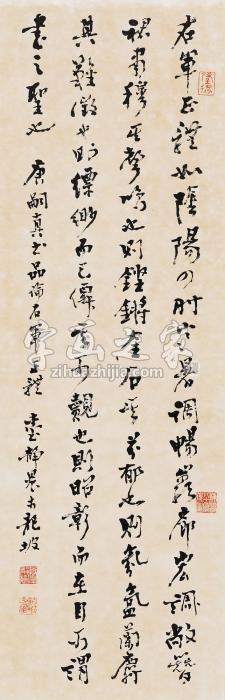 右軍正體如陰陽四時寒暑調暢巖廊宏調敞簪
裾肅穆其聲鳴也則鏗鏘金石其芬郁也則氤氳蘭麝
其難徵也則縹緲而已僊其可覿也則昭彰而在目可謂
書之聖也 唐嗣真書品論右軍正體 臺靜農於龍坡
字画之家
zihuazhijia.com